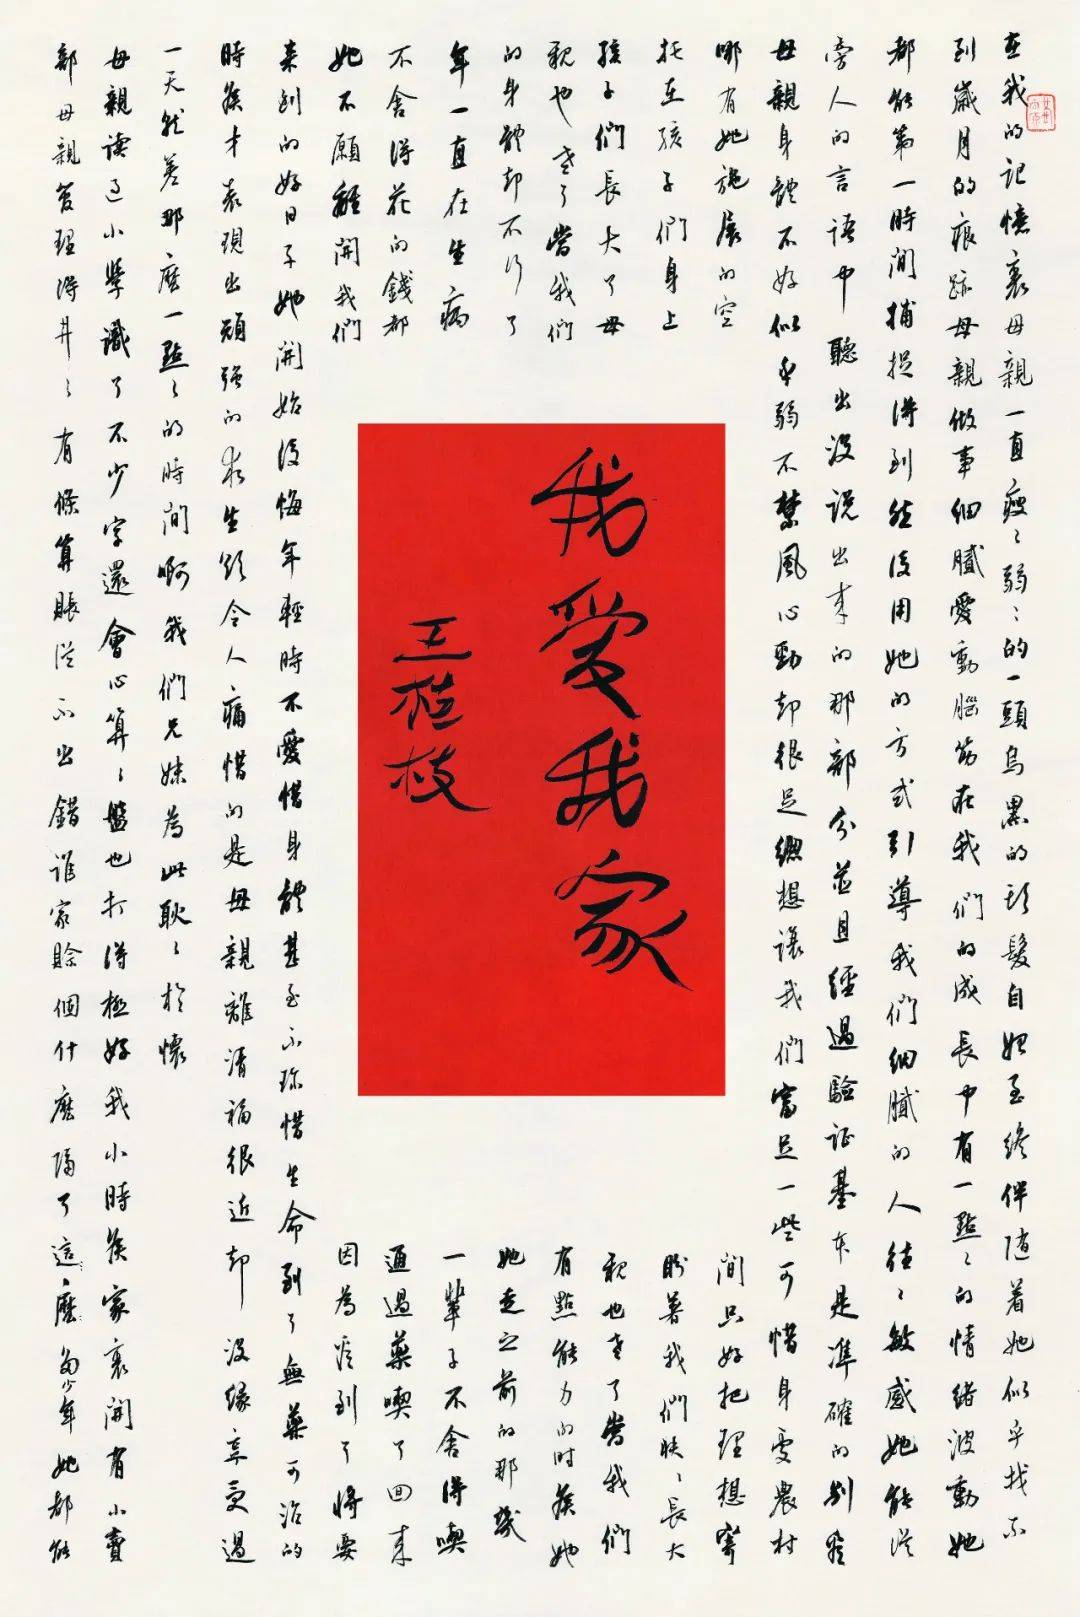 在我的記憶裏母親一直瘦〻弱〻的一頭烏黑的頭髮自始至終伴隨着她似乎找不
到歲月的痕跡母親做事細膩愛動腦筋在我們的成長中有一點〻的情緒波動她
都能第一時間捕捉得到然後用她的方式引導我們細膩的人往〻敏感她能從
旁人的言語中聽出沒說出来的那部分並且經過驗证基本是準確的别看
母親身體不好似乎弱不禁風心勁却很足總想讓我們富足一些可惜身處農村
哪有她施展的空
間只好把理想寄
托在孩子們身上
盼著我們快〻長大
孩子們長大了母
親也老了當我們
親也老了當我們
有點能力的时候她
的身體却不行了
她走之前的那幾
年一直在生病
一輩子不舍得喫
不舍得花的錢都
通過藥喫了回来
她不願離開我們
因為盼到了將要
来到的好日子她開始後悔年輕時不愛惜身體甚至不珍惜生命到了無藥可治的
時候才表現出頑强的求生欲令人痛惜的是母親離清福很近却沒緣享受過
一天就差那麼一點〻的時間啊我們兄妹為此耿〻於懷
母親讀過小學識了不少字還會心算〻盤也打得極好我小時候家裏開有小賣
部母親管理得井〻有條算賬從不出錯誰家賒個什麼隔了這麼多年她都能
我爱我家
王桂枝